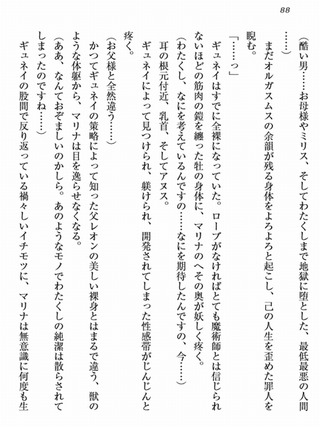 88
(酷い男……お母様やミリス、そしてわたくしまで地獄に堕とした、最低最悪の人間
……)
まだオルガスムスの余韻が残る身体をよろよろと起こし、己の人生を歪めた罪人を
睨む。
「……っ」
ギュネイはすでに全裸になっていた。ローブがなければとても魔術師とは信じられ
ないほどの筋肉の鎧を纏った牡の身体に、マリナのへその奥が妖しく疼く。
(わたくし、なにを考えているんですの……なにを期待したんですの、今……)
耳の根元付近、乳首、そしてアヌス。
ギュネイによって見つけられ、躾けられ、開発されてしまった性感帯がじんじんと
疼く。
(お父様と全然違う……)
かつてギュネイの策略によって知った父レオンの美しい裸身とはまるで違う、獣の
ような体躯から、マリナは目を逸らせなくなる。
(ああ、なんておぞましいのかしら。あのようなモノでわたくしの純潔は散らされて
しまったのですね……)
ギュネイの股間で反り返っている禍々しいイチモツに、マリナは無意識に何度も生